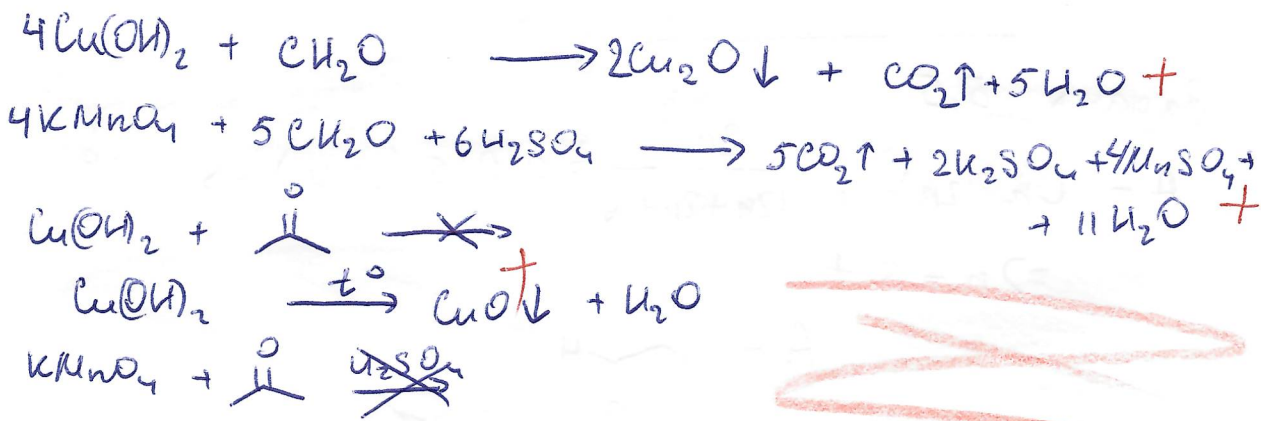 4Cu(OH)₂ + CH₂O ⟶ 2Cu₂O↓ + CO₂↑ + 5H₂O +
4KMnO₄ + 5CH₂O + 6H₂SO₄ ⟶ 5CO₂↑ + 2K₂SO₄ + 4MnSO₄ +
+ 11H₂O +
Cu(OH)₂ + O
Cu(OH)₂ t° ⟶ CuO↓ + H₂O +
KMnO₄ + O H₂SO₄